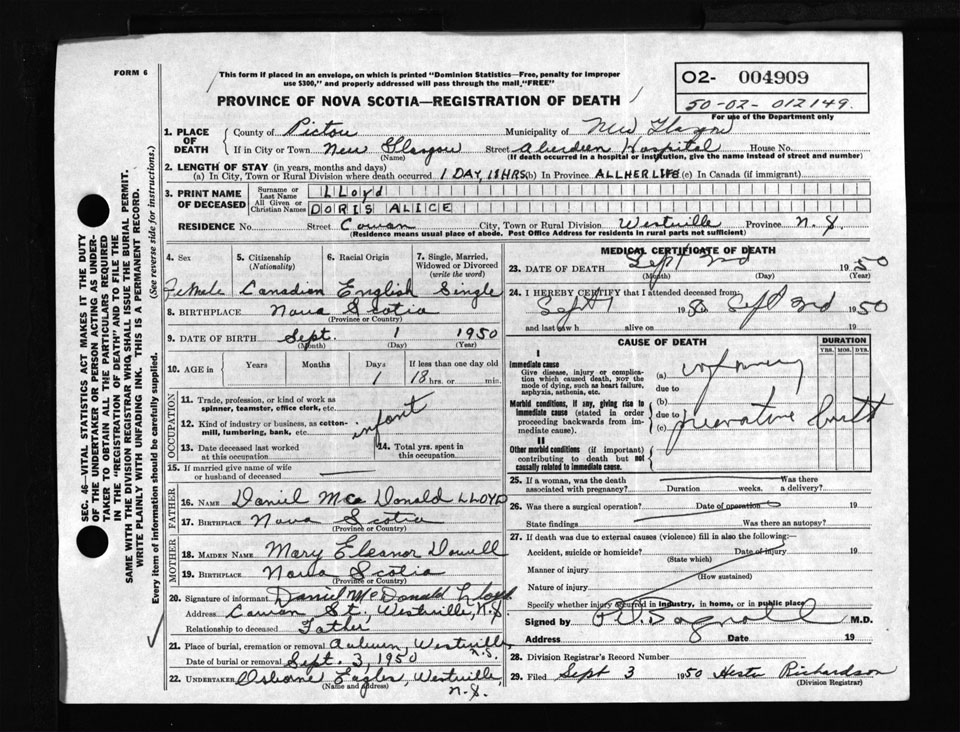 FORM 6
This form if placed in an envelope, on which is printed "Dominion Statistics—Free, penalty for improper
use $300," and properly addressed will pass through the mail, "FREE"
O2- 004909
50-02-012149.
For use of the Department only
PROVINCE OF NOVA SCOTIA—REGISTRATION OF DEATH
SEC. 46—VITAL STATISTICS ACT MAKES IT THE DUTY
OF THE UNDERTAKER OR PERSON ACTING AS UNDER-
TAKER TO OBTAIN ALL THE PARTICULARS REQUIRED
IN THE "REGISTRATION OF DEATH" AND TO FILE THE
SAME WITH THE DIVISION REGISTRAR WHO SHALL ISSUE THE BURIAL PERMIT.
WRITE PLAINLY WITH UNFADING INK. THIS IS A PERMANENT RECORD.
Every item of information should be carefully supplied. (See reverse side for instructions.)
1. PLACE OF DEATH
County of Pictou Municipality of New Glasgow
If in City or Town New Glasgow Street Aberdeen Hospital House No.
(Name) (If death occurred in a hospital or institution, give the name instead of street and number)
2. LENGTH OF STAY (in years, months and days)
(a) In City, Town or Rural Division where death occurred 1 DAY, 18 HRS (b) In Province ALL HER LIFE (c) In Canada (if immigrant)
3. PRINT NAME OF DECEASED
Surname or Last Name LLOYd
All Given or Christian Names DORIS ALICE
RESIDENCE No. Street Cowan City, Town or Rural Division Westville Province N.S.
(Residence means usual place of abode. Post Office Address for residents in rural parts not sufficient)
4. Sex 5. Citizenship (Nationality) 6. Racial Origin 7. Single, Married, Widowed or Divorced (write the word)
Female Canadian English Single
8. BIRTHPLACE Nova Scotia
(Province or Country)
9. DATE OF BIRTH Sept. 1 1950
(Month) (Day) (Year)
10. AGE in Years Months Days If less than one day old
1 18 hrs. or min.
OCCUPATION
11. Trade, profession, or kind of work as
spinner, teamster, office clerk, etc.
12. Kind of industry or business, as cotton-
mill, lumbering, bank, etc. infant
13. Date deceased last worked
at this occupation
14. Total yrs. spent in
this occupation
15. If married give name of wife
or husband of deceased
FATHER
16. NAME Daniel McDonald LLOYD
17. BIRTHPLACE Nova Scotia
(Province or Country)
MOTHER
18. MAIDEN NAME Mary Eleanor Dowell
19. BIRTHPLACE Nova Scotia
(Province or Country)
20. Signature of informant Daniel McDonald Lloyd
Address Cowan St., Westville, N.S
Relationship to deceased Father
21. Place of burial, cremation or removal Auburn, Westville N.S.
Date of burial or removal Sept. 3, 1950
22. UNDERTAKER Osborne Eagles, Westville, N.S.
(Name and address)
MEDICAL CERTIFICATE OF DEATH
23. DATE OF DEATH Sept 2nd 1950
(Month) (Day) (Year)
24. I HEREBY CERTIFY that I attended deceased from:
Sept 1 1950 Sept 2nd 1950
and last saw h alive on 19
CAUSE OF DEATH
DURATION
YRS. MOS. DYS.
I
Immediate cause
Give disease, injury or complica-
tion which caused death, NOT the
mode of dying, such as heart failure,
asphyxia, asthenia, etc.
(a)
due to
Morbid conditions, if any, giving rise to
immediate cause (stated in order
proceeding backwards from im-
mediate cause).
(b)
due to
(c) premature birth
II
Other morbid conditions (if important)
contributing to death but not
causally related to immediate cause.
25. If a woman, was the death
associated with pregnancy? Duration weeks. Was there
a delivery?
26. Was there a surgical operation? Date of operation
State findings Was there an autopsy?
27. If death was due to external causes (violence) fill in also the following:
Accident, suicide or homicide? Date of injury 19
(State which)
Manner of injury
(How sustained)
Nature of injury
Specify whether injury occurred in industry, in home, or in public place
Signed by M.D.
Address Date 19
28. Division Registrar's Record Number
29. Filed Sept 3 1950 Hester Richardson
(Division Registrar)